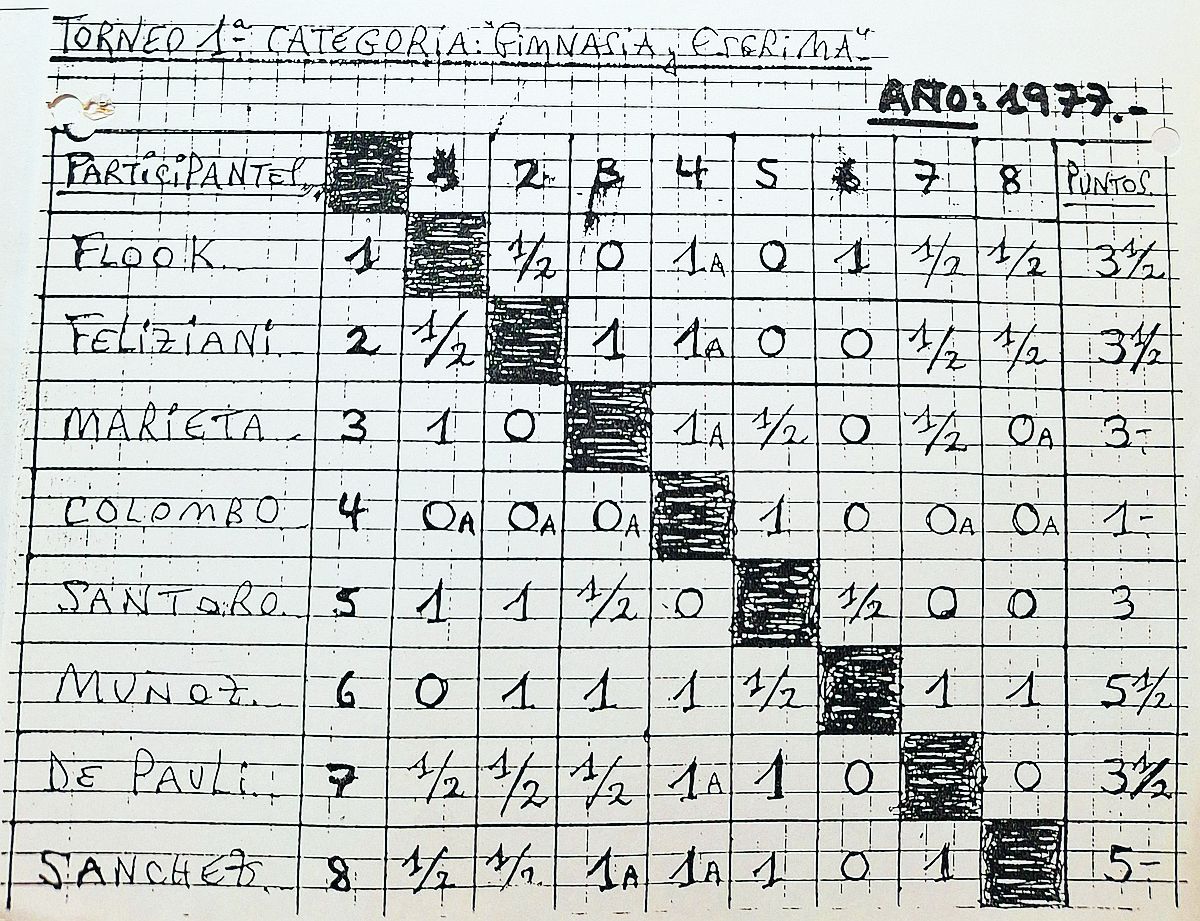 TORNEO 1ª CATEGORIA: "GIMNASIA y ESGRIMA"
AÑO: 1977.-
PARTICIPANTES 1 2 3 4 5 6 7 8 PUNTOS.
FLOOK 1 1/2 0 1A 0 1 1/2 1/2 3 1/2
FELIZIANI 2 1/2 1 1A 0 0 1/2 1/2 3 1/2
MARIETA 3 1 0 1A 1/2 0 1/2 0A 3-
COLOMBO 4 0A 0A 0A 1 0 0A 0A 1-
SANTORO 5 1 1 1/2 0 1/2 0 0 3
MUNOZ 6 0 1 1 1 1/2 1 1 5 1/2
DE PAULI 7 1/2 1/2 1/2 1A 1 0 0 3 1/2
SANCHEZ 8 1/2 1/2 1A 1A 1 0 1 5-